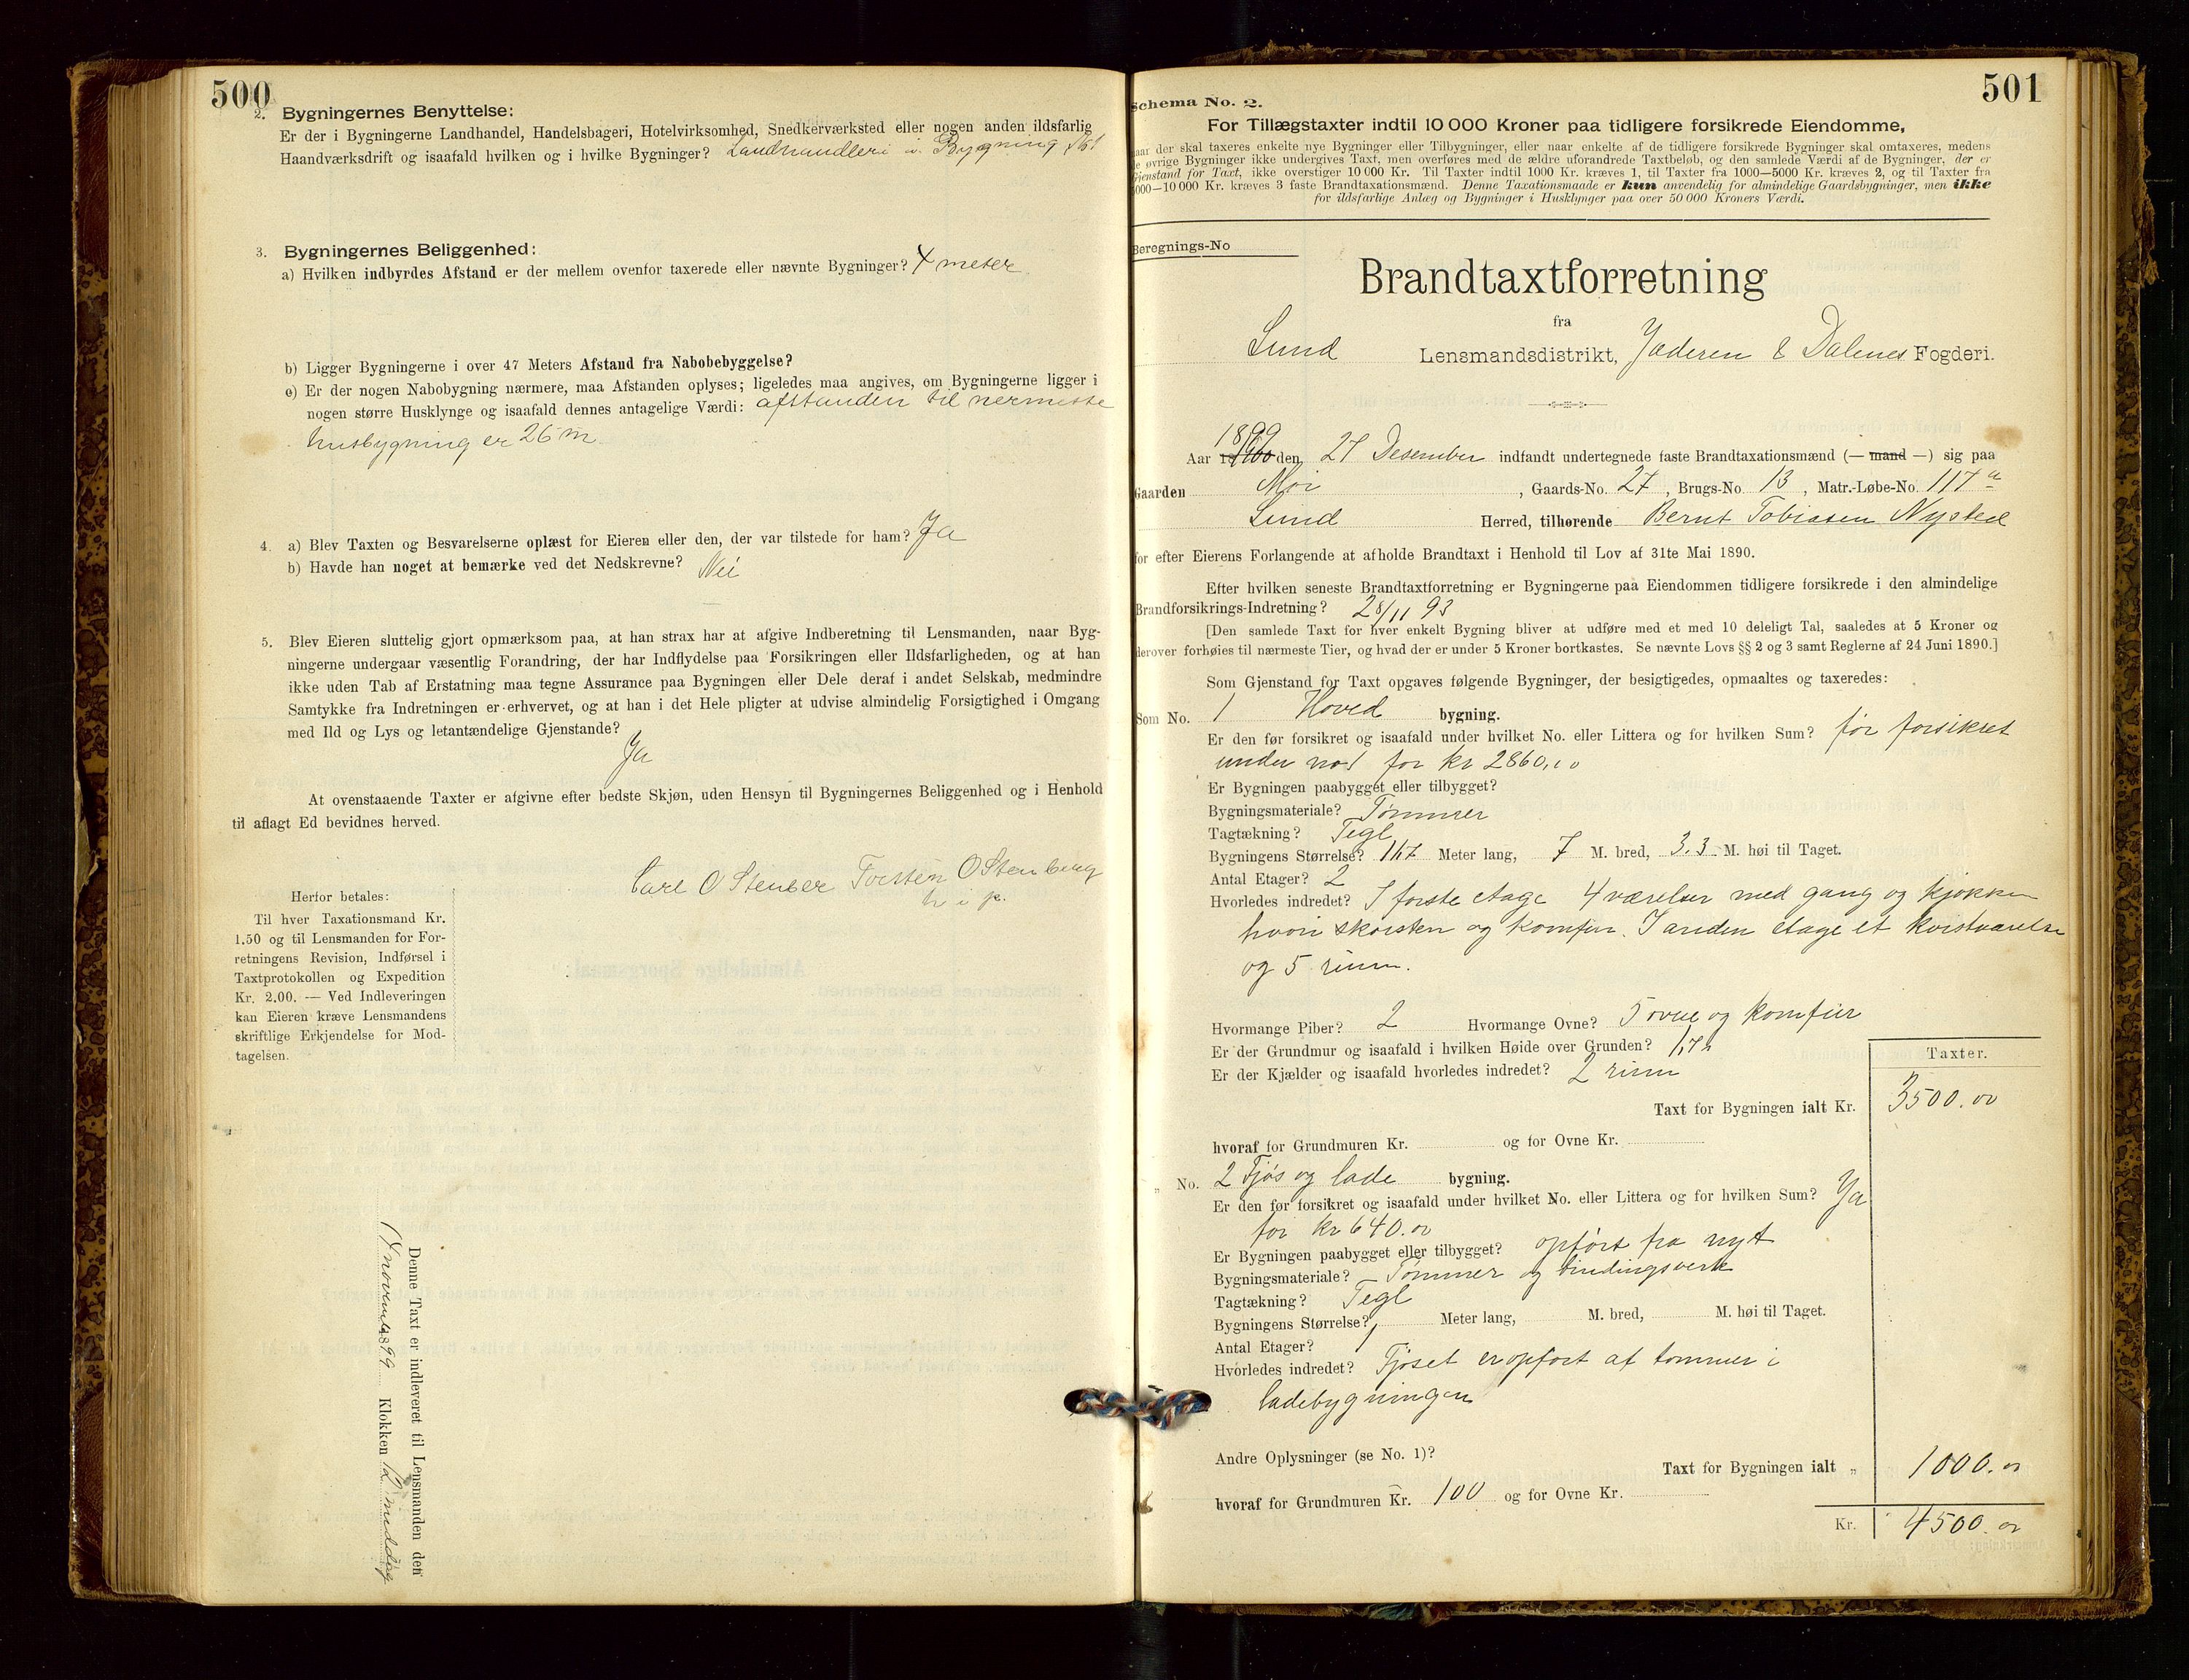 500
2. Bygningernes Benyttelse:
Er der i Bygningerne Landhandel, Handelsbageri, Hotelvirksomhed, Snedkerværksted eller nogen anden ildsfarlig
Haandværksdrift og isaafald hvilken og i hvilke Bygninger? Landhandleri i Bygning No 1
3. Bygningernes Beliggenhed:
a) Hvilken indbyrdes Afstand er der mellem ovenfor taxerede eller nævnte Bygninger? 4 meter
b) Ligger Bygningerne i over 47 Meters Afstand fra Nabobebyggelse?
c) Er der nogen Nabobygning nærmere, maa Afstanden oplyses; ligeledes maa angives, om Bygningerne ligger i
nogen større Husklynge og isaafald dennes antagelige Værdi: afstanden til nermeste
husbygning er 26 m
4. a) Blev Taxten og Besvarelserne oplæst for Eieren eller den, der var tilstede for ham? Ja
b) Havde han noget at bemærke ved det Nedskrevne? Nei
5. Blev Eieren sluttelig gjort opmærksom paa, at han strax har at afgive Indberetning til Lensmanden, naar Byg-
ningerne undergaar væsentlig Forandring, der har Indflydelse paa Forsikringen eller Ildsfarligheden, og at han
ikke uden Tab af Erstatning maa tegne Assurance paa Bygningen eller Dele deraf i andet Selskab, medmindre
Samtykke fra Indretningen er erhvervet, og at han i det Hele pligter at udvise almindelig Forsigtighed i Omgang
med Ild og Lys og letantændelige Gjenstande?
Ja
At ovenstaaende Taxter er afgivne efter bedste Skjøn, uden Hensyn til Bygningernes Beliggenhed og i Henhold
til aflagt Ed bevidnes herved.
Carl O Stenber Torsten O Stenberg
h i p.
Herfor betales:
Til hver Taxationsmand Kr.
1.50 og til Lensmanden for For-
retningens Revision, Indførsel i
Taxtprotokollen og Expedition
Kr. 2.00. — Ved Indleveringen
kan Eieren kræve Lensmandens
skriftlige Erkjendelse for Mod-
tagelsen.
Denne Taxt er indleveret til Lensmanden den
november 1899 Klokken 12 middag
501
Schema No. 2.
For Tillægstaxter indtil 10 000 Kroner paa tidligere forsikrede Eiendomme,
naar der skal taxeres enkelte nye Bygninger eller Tilbygninger, eller naar enkelte af de tidligere forsikrede Bygninger skal omtaxeres, medens
de øvrige Bygninger ikke undergives Taxt, men overføres med de ældre uforandrede Taxtbeløb, og den samlede Værdi af de Bygninger, der er
Gjenstand for Taxt, ikke overstiger 10 000 Kr. Til Taxter indtil 1000 Kr. kræves 1, til Taxter fra 1000—5000 Kr. kræves 2, og til Taxter fra
5000—10 000 Kr. kræves 3 faste Brandtaxationsmænd. Denne Taxationsmaade er kun anvendelig for almindelige Gaardsbygninger, men ikke
for ildsfarlige Anlæg og Bygninger i Husklynger paa over 50 000 Kroners Værdi.
Beregnings-No
Brandtaxtforretning
fra
Lund Lensmandsdistrikt, Jæderen & Dalenes Fogderi.
1899
Aar 1900 den 27 Desember indfandt undertegnede faste Brandtaxationsmænd (— mand —) sig paa
Gaarden Moi, Gaards-No. 27, Brugs-No 13, Matr.-Løbe-No. 117 a
Lund Herred, tilhørende Bernt Tobiasen Nysted
for efter Eierens Forlangende at afholde Brandtaxt i Henhold til Lov af 31te Mai 1890.
Efter hvilken seneste Brandtaxtforretning er Bygningerne paa Eiendommen tidligere forsikrede i den almindelige
Brandforsikrings-Indretning? 28/11 93
[Den samlede Taxt for hver enkelt Bygning bliver at udføre med et med 10 deleligt Tal, saaledes at 5 Kroner og
derover forhøies til nærmeste Tier, og hvad der er under 5 Kroner bortkastes. Se nævnte Lovs §§ 2 og 3 samt Reglerne af 24 Juni 1890.]
Som Gjenstand for Taxt opgaves følgende Bygninger, der besigtigedes, opmaaltes og taxeredes:
Som No. 1 Hoved bygning.
Er den før forsikret og isaafald under hvilket No. eller Littera og for hvilken Sum? før forsikret
under no 1 for kr 2860,00
Er Bygningen paabygget eller tilbygget?
Bygningsmateriale? Tømmer
Tagtækning? Tegl
Bygningens Størrelse? Meter lang, 7 M. bred, 3.3 M. høi til Taget.
Antal Etager? 2
Hvorledes indredet? I første etage 4 værelser med gang og kjøkken
hvori skorsten og komfur. I anden etage et kvistværelse
og 5 rum.
Hvormange Piber? 2 Hvormange Ovne? 5 ovne og komfur
Er der Grundmur og isaafald i hvilken Høide over Grunden?
Er der Kjælder og isaafald hvorledes indredet? 2 rum
Taxter.
Taxt for Bygningen ialt Kr. 3500.00
hvoraf for Grundmuren Kr. og for Ovne Kr.
" No. 2 Fjøs og lade bygning.
Er den før forsikret og isaafald under hvilket No. eller Littera og for hvilken Sum? Ja
for kr 640.00
Er Bygningen paabygget eller tilbygget? opført fra nyt
Bygningsmateriale? Tømmer og bindingsverk
Tagtækning? Tegl
Bygningens Størrelse? Meter lang, M. bred, M. høi til Taget.
Antal Etager? 1
Hvorledes indredet? Fjøset er opført af tømmer i
ladebygningen
Andre Oplysninger (se No. 1)?
Taxt for Bygningen ialt " 1000.00
hvoraf for Grundmuren Kr. 100 og for Ovne Kr.
Kr. 4500.00